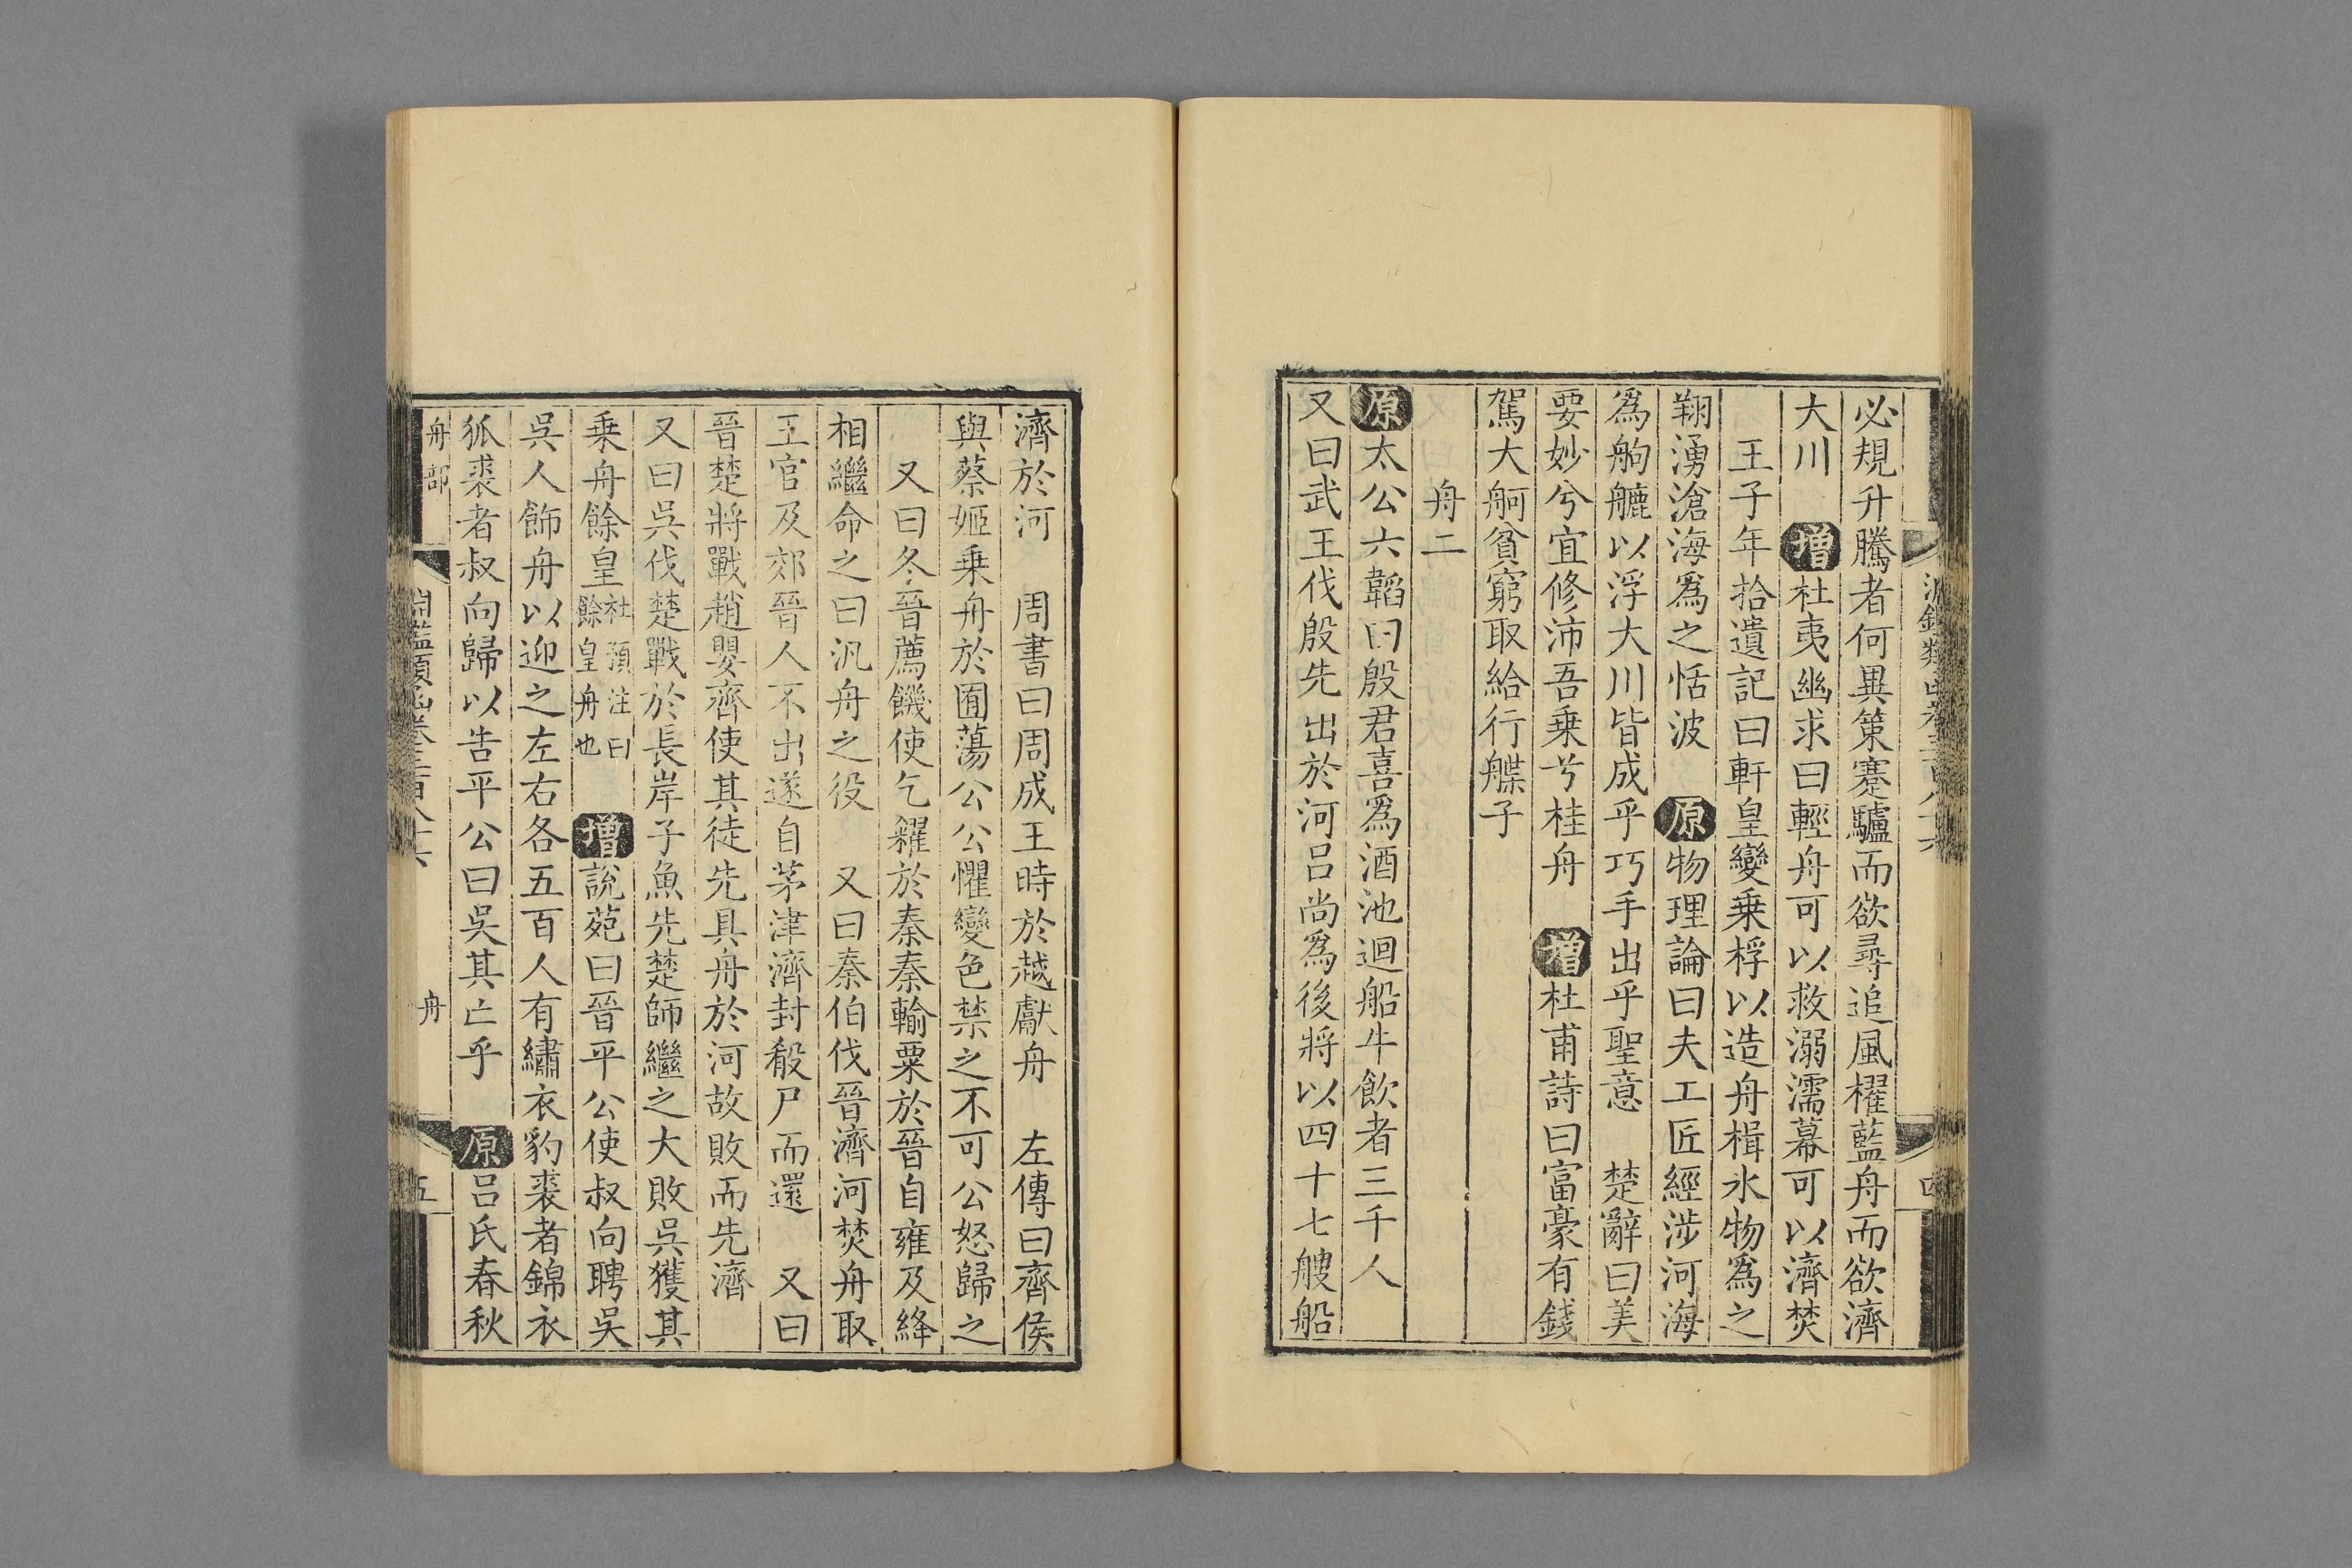 必規升騰者何異策蹇驢而欲尋追風櫂藍舟而欲濟
大川　增杜夷幽求曰輕舟可以救溺濡幕可以濟焚
王子年拾遺記曰軒皇變乗桴以造舟楫氷物爲之
翔湧滄海爲之恬波　原物理論曰夫工匠經涉河海
爲舿艫以浮大川皆成乎巧手出乎聖意　楚辭曰美
要妙兮宜修沛吾乗兮桂舟　增杜甫詩曰富豪有錢
駕大舸貧窮取給行艓子
舟二
原太公六韜曰殷君喜爲酒池迴船牛飲者三千人
又曰武王伐殷先出於河呂尚爲後將以四十七艘船
濟於河　周書曰周成王時於越獻舟　左傳曰齊侯
與蔡姬乗舟於囿蕩公公懼變色禁之不可公怒歸之
又曰冬晉薦饑使乞糴於秦秦輸粟於晉自雍及絳
相繼命之曰汎舟之役　又曰秦伯伐晉濟河焚舟取
王官及郊晉人不出遂自茅津濟封殽尸而還　又曰
晉楚將戰趙嬰齊使其徒先具舟於河故敗而先濟
又曰吳伐楚戰於長岸子魚先楚師繼之大敗吳獲其
乗舟餘皇杜預注曰餘皇舟也　增說苑曰晉平公使叔向聘吳
吳人飾舟以迎之左右各五百人有繡衣豹裘者錦衣
狐裘者叔向歸以告平公曰吳其亡乎　原呂氏春秋
舟部
舟
五